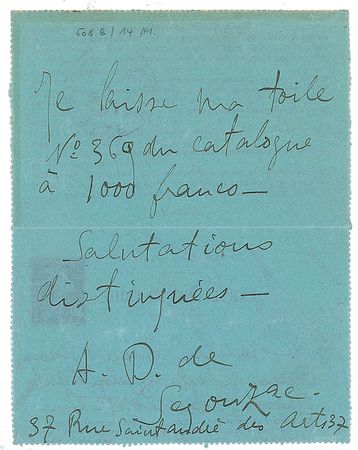 508 B / 14 M.
Je laisse ma toile
No 369 du catalogue
à 1000 francs—
Salutations
distinguées—
A. D. de
Segonzac.
37 Rue Saint andré des Arts 37